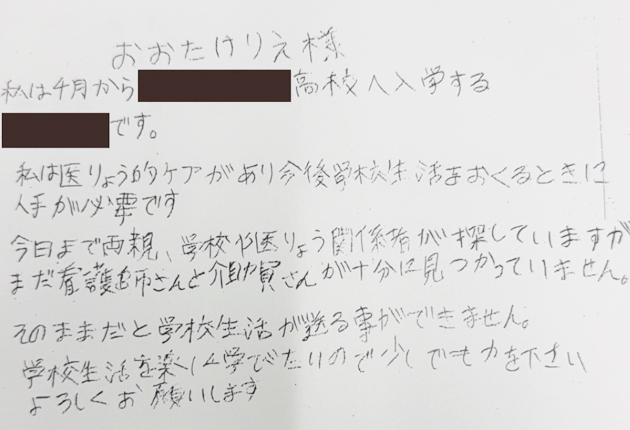 おおたけりえ様
私は4月から高校へ入学する
です。
私は医りょう的ケアがあり今後学校生活をおくるときに
人手が必要です
今日まで両親、学校や医りょう関係者が探していますが
まだ看護師さんと介助員さんが十分に見つかっていません。
そのままだと学校生活が送る事ができません。
学校生活を楽しく学びたいので少しでも力を下さい
よろしくお願いします